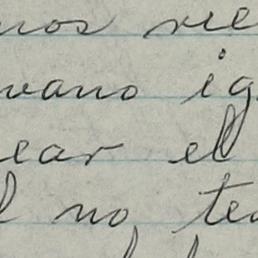 nos vie
vano ig
ear el
l no tea